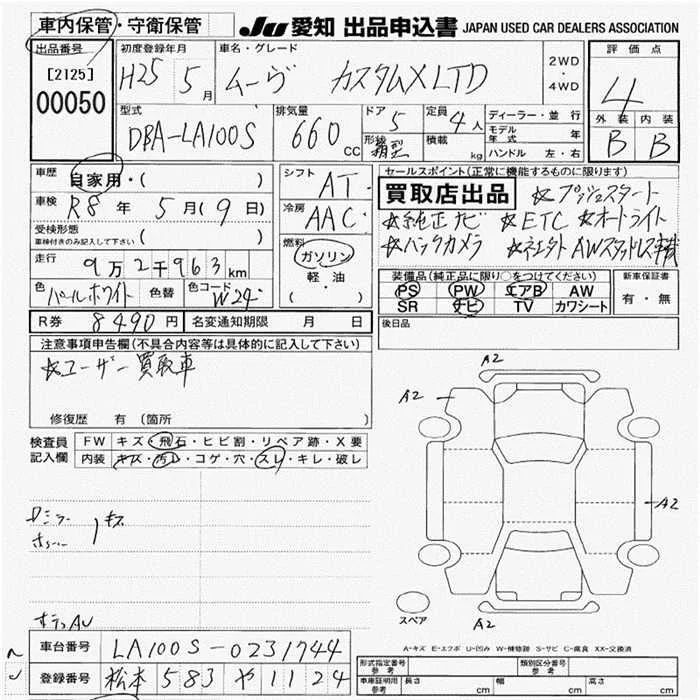 車内保管・守衛保管
JU 愛知 出品申込書 JAPAN USED CAR DEALERS ASSOCIATION
出品番号
[2125]
00050
初度登録年月
H25 5月
車名・グレード
ムーヴ カスタムX LTD
2WD
・
4WD
評価点
4
外装 内装
B B
型式
DBA-LA100S
排気量
660 CC
ドア
5
形状
箱型
定員
4人
積載
kg
ディーラー・並行
モデル年式 年
ハンドル 左・右
車歴
自家用・( )
車検
R8年5月(9日)
受検形態
車検付きのみ記入して下さい ( )
走行
9万2千963km
色
パールホワイト
色替
色コード
W24
シフト
AT
冷房
AAC
燃料
ガソリン
軽・油
( ・ )
セールスポイント(正常に機能するものに限ります)
買取店出品 ☆プッシュスタート
☆純正ナビ ☆ETC ☆オートライト
☆バックカメラ
装備品(純正品に限り○をつけてください)
PS PW エアB AW
SR ナビ TV カワシート
新車保証書
有・無
R券 8490円 名変通知期限 月 日
後日品
注意事項申告欄(不具合内容等は具体的に記入して下さい)
☆ユーザー買取車
修復歴 有(箇所 )
検査員
記入欄
FW キズ・飛石・ヒビ割・リペア跡・X要
内装 キズ・汚レ・コゲ・穴・スレ・キレ・破レ
Dミラー
キズ
A2
A2
A2
A2
スペア
A-キズ E-エクボ U-凹み W-補修跡 S-サビ C-腐食 XX-交換済
車台番号 LA100S-0231744
登録番号 松本 583 や 1124
形式指定番号
参考
類別区分番号
参考
車庫証明用
参考
長さ cm
幅 cm
高さ cm